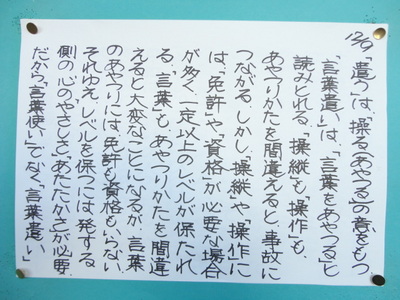 12/9
「遣う」は、「操る(あやつる)」の意をもつ
「言葉遣い」は、「言葉をあやつる」と
読みとれる。「操縦」も「操作」も、
あやつりかたを間違えると、事故に
つながる。しかし、「操縦」や「操作」に
は、「免許」や、「資格」が必要な場合
が多く、一定以上のレベルが保たれ
る。「言葉」も、あやつりかたを間違
えると大変なことになるが、言葉
のあやつりには、免許も資格もいらない。
それゆえ、レベルを保つには、発する
側の心の「やさしさ」「あたたかさ」が必要。
だから、「言葉使い」でなく「言葉遣い」